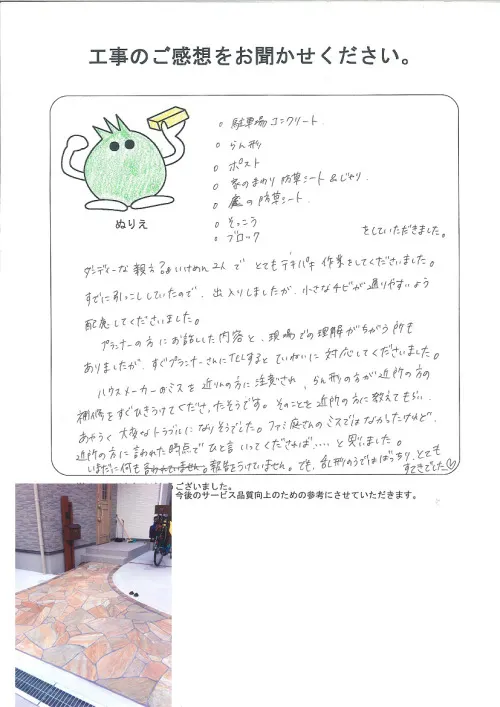 工事のご感想をお聞かせください。
ぬりえ
○ 駐車場コンクリート.
○ らん形
○ ポスト
○ 家のまわり 防草シート & じゃり.
○ 庭の 防草シート.
○ そっこう
○ ブロック
をしていただきました。
ダンディーな 親方&いけめん2人で とてもテキパキ 作業をしてくださいました。
すでに引っこししていたので、出入りしましたが、小さなチビが通りやすいよう
配慮してくださいました。
プランナーの方にお話しした内容と、現場での理解がちがう所も
ありましたが、すぐプランナーさんにTELするとていねいに対応してくださいました。
ハウスメーカーのミスを近りんの方に注意され、らん形の方が近所の方の
補修をすぐひきうけてくださったそうです。そのことを近所の方に教えてもらい、
あやうく大変なトラブルになりそうでした。ファミ庭さんのミスではなかったけれど、
近所の方に言われた時点でひと言いってくだされば‥‥と思いました。
いまだに何も 報告をうけていません。でも、乱形のうではばっちり、とても
すてきでした♡
ございました。
今後のサービス品質向上のための参考にさせていただきます。